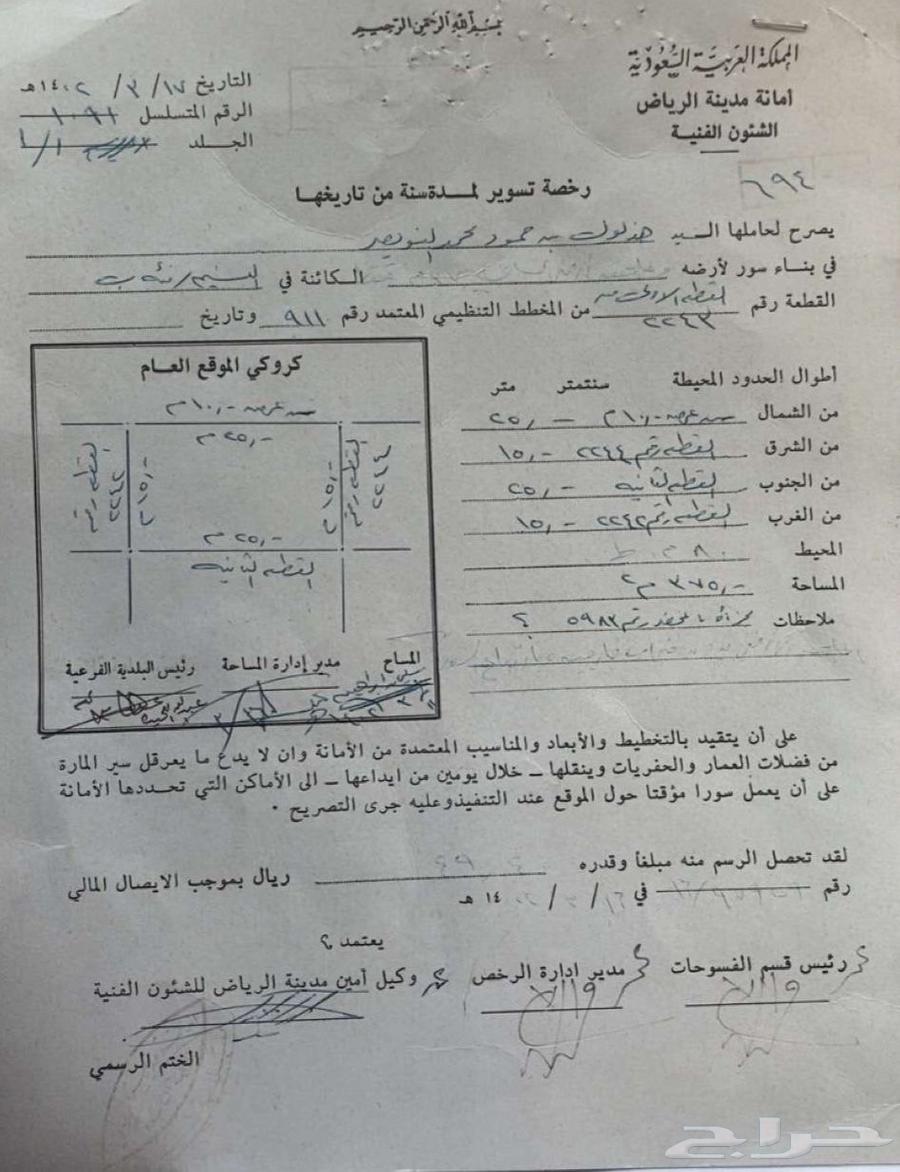 بسم الله الرحمن الرحيم
المملكة العربية السعودية
أمانة مدينة الرياض
الشئون الفنية
التاريخ ١٧/ ٣/ ١٤٠٢هـ
الرقم المتسلسل ١٠٩١
الجلد
٦٩٤
رخصة تسوير لمدة سنة من تاريخها
يصرح لحاملها السيد هذلول بن حمود محمد
في بناء سور لأرضه الكائنة في النسيم
القطعة رقم القطعة الاولى من ٢٢٤٣ من المخطط التنظيمي المعتمد رقم ٩١١ وتاريخ
أطوال الحدود المحيطة سنتمتر متر
من الشمال عرضه -,١٠م -,٢٥
من الشرق القطعة رقم ٢٢٤٤ -,١٥
من الجنوب القطعة الثانية -,٢٥
من الغرب القطعة رقم ٢٢٤٢ -,١٥
المحيط ٨٠ م.ط
المساحة -,٣٧٥ م٢
ملاحظات مجزأة بالمحضر رقم ٥٩٨٣
كروكي الموقع العام
عرضه -,١٠م
-,٢٥م
القطعة رقم ٢٢٤٢
-,١٥م
-,١٥م
القطعة رقم ٢٢٤٤
-,٢٥م
القطعة الثانية
المساح
مدير إدارة المساحة
رئيس البلدية الفرعية
على أن يتقيد بالتخطيط والأبعاد والمناسيب المعتمدة من الأمانة وان لا يدع ما يعرقل سير المارة
من فضلات العمار والحفريات وينقلها ــ خلال يومين من ايداعها ــ الى الأماكن التي تحددها الأمانة
على أن يعمل سورا مؤقتا حول الموقع عند التنفيذ وعليه جرى التصريح .
لقد تحصل الرسم منه مبلغا وقدره ريال بموجب الايصال المالي
رقم في ١٦/ ٣/ ١٤٠٢ هـ
يعتمد ؟
رئيس قسم الفسوحات
مدير ادارة الرخص
وكيل أمين مدينة الرياض للشئون الفنية
الختم الرسمي
حراج